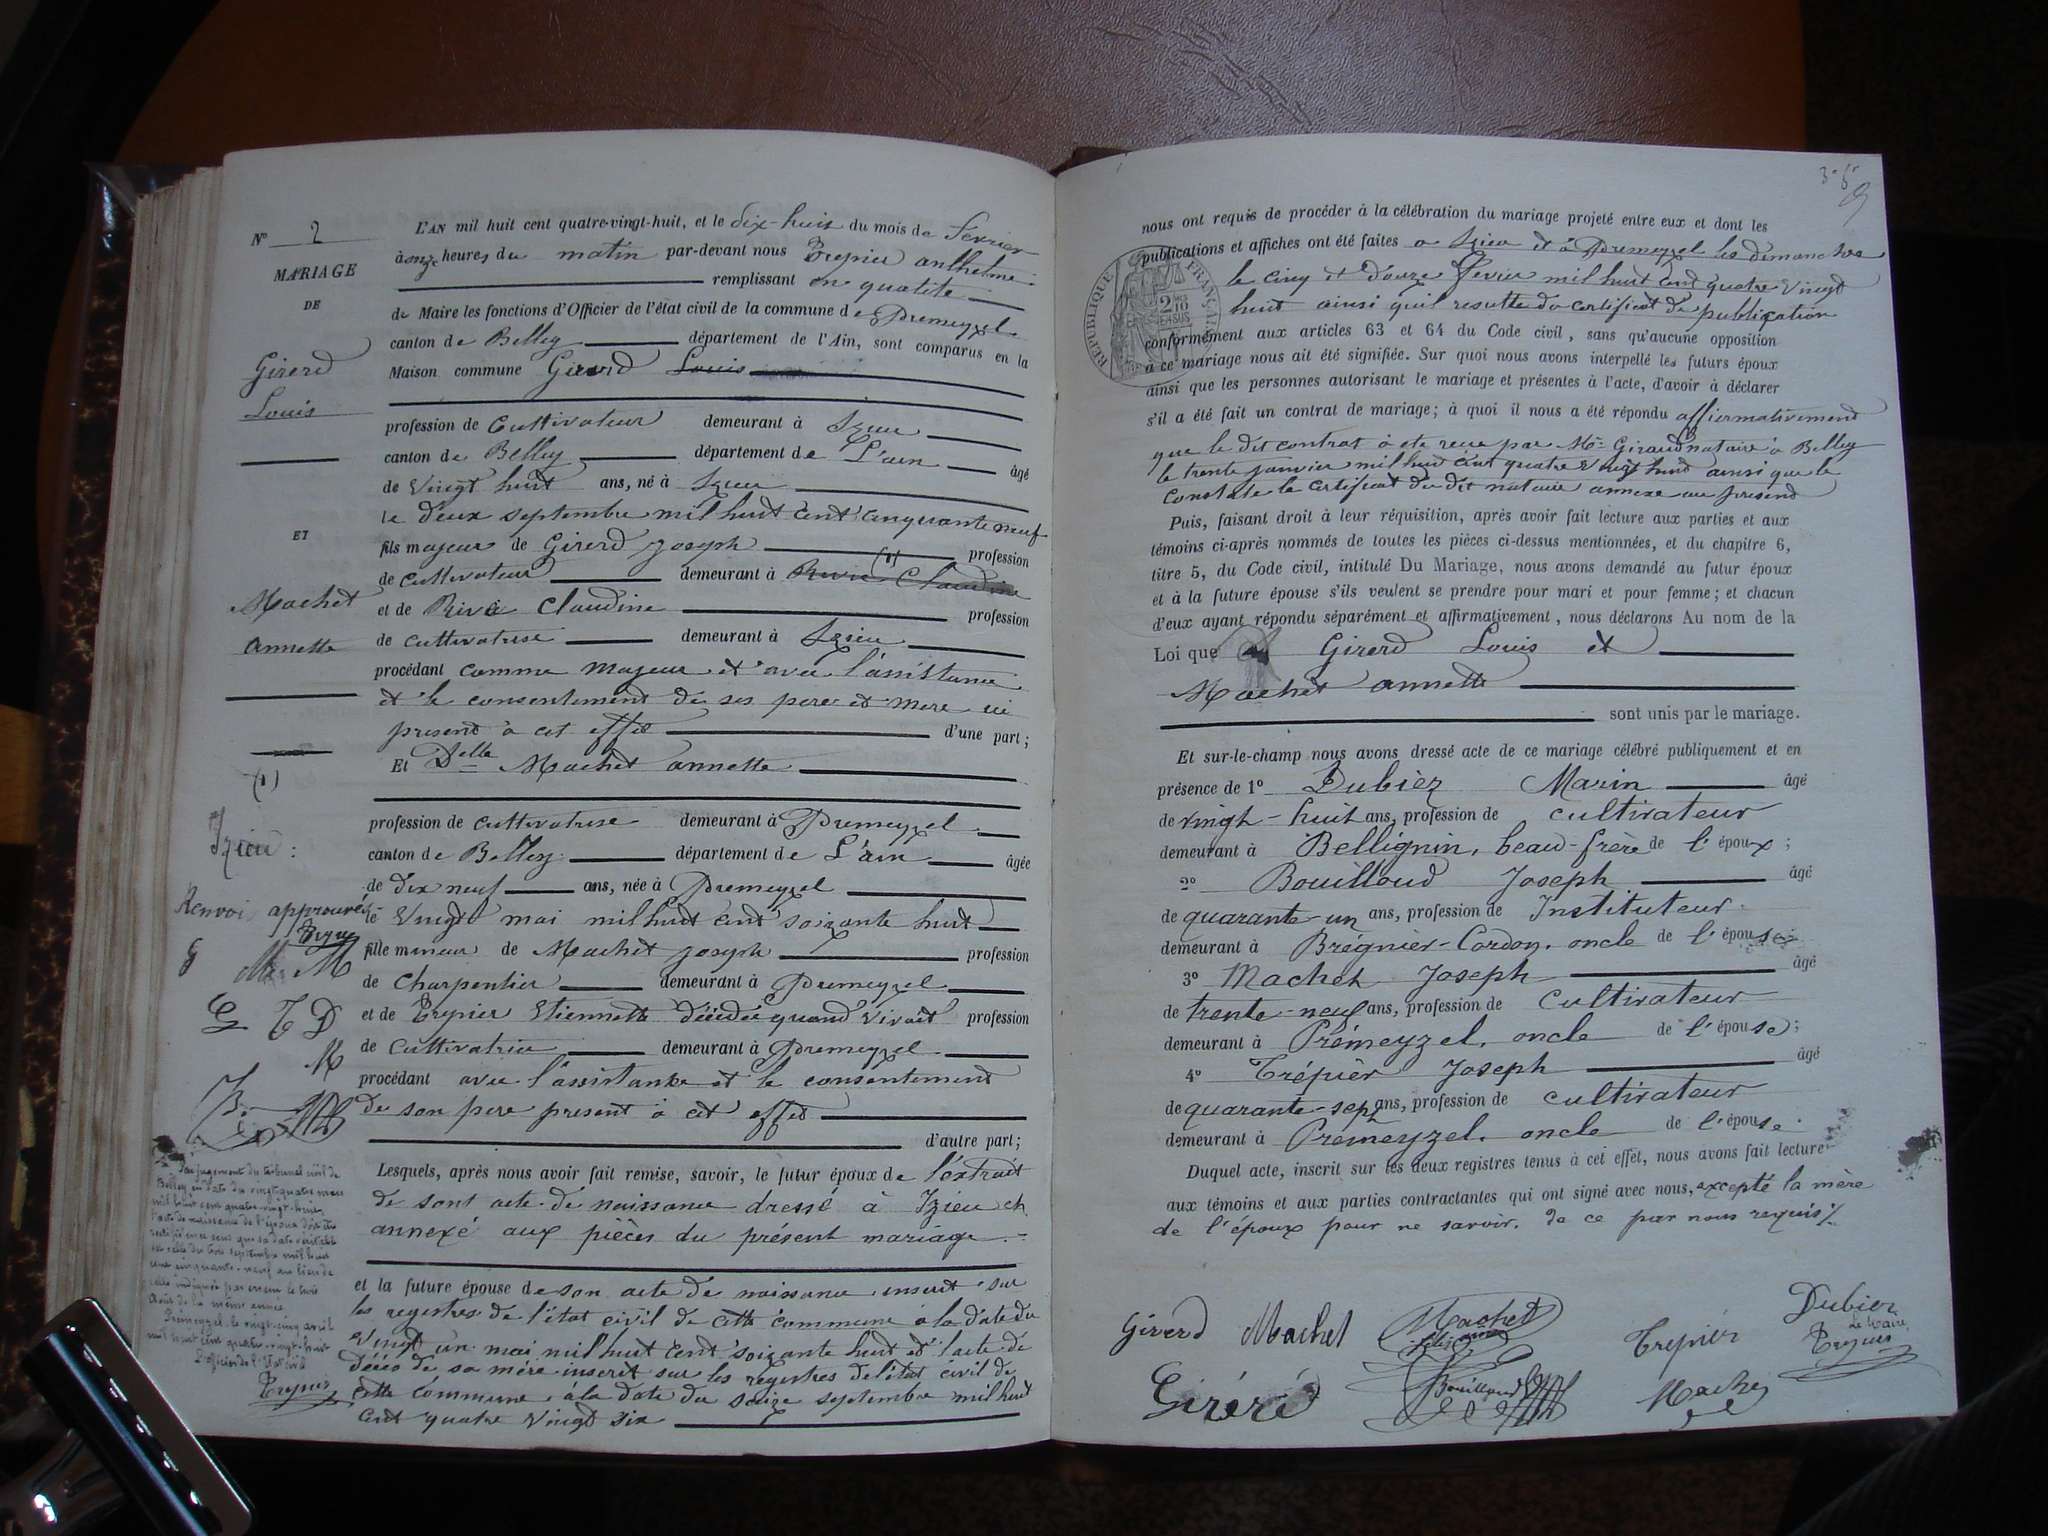 N° 2
MARIAGE
DE
Girerd
Louis
ET
Machet
annette
(1)
Izieu :
Renvoi approuvé
Trepier
M M
G T D
M
B.
Par jugement du tribunal civil de
Belley en date du vingt quatre mars
mil huit cent quatre-vingt-huit,
l'acte de naissance de l'époux doit être
rectifié en ce sens que sa date véritable
est celle du trois septembre mil huit
cent cinquante-neuf au lieu de
celle indiquée par erreur le trois
Août de la même année
Prémeyzel le vingt-cinq avril
mil huit cent quatre-vingt-huit
L'officier de l'Etat civil
Trepier
L'AN mil huit cent quatre-vingt-huit, et le dix-huit du mois de Fevrier
à onze heures du matin par-devant nous Trepier anthelme
remplissant en qualite
de Maire les fonctions d'Officier de l'état civil de la commune de Premeyzel
canton de Belley département de l'Ain, sont comparus en la
Maison commune Girerd Louis
profession de Cultivateur demeurant à Izieu
canton de Belley département de L'ain âgé
de Vingt huit ans, né à Izieu
le deux septembre mil huit cent cinquante neuf
fils majeur de Girerd Joseph profession
de cultivateur demeurant à Rive Claudine (1)
et de Rive Claudine profession
de cultivatrise demeurant à Izieu
procédant comme majeur et avec l'assistance
et le consentement de ses pere et mere ici
present à cet effet d'une part ;
Et Delle Machet annette
profession de cultivatrise demeurant à Premeyzel
canton de Belley département de L'ain âgée
de dix neuf ans, née à Premeyzel
le Vingt mai mil huit cent soixante huit
fille mineur de Machet Joseph profession
de Charpentier demeurant à Premeyzel
et de Trepier Etiennette décédée quand vivait profession
de cultivatrice demeurant à Premeyzel
procédant avec l'assistance et le consentement
de son pere present à cet effet
d'autre part ;
Lesquels, après nous avoir fait remise, savoir, le futur époux de l'extrait
de sont acte de naissance dressé à Izieu et
annexé aux pièces du présent mariage.
et la future épouse de son acte de naissance inscrit sur
les registres de l'état civil de cette commune à la date du
Vingt un mai mil huit cent soixante huit et l'acte de
décès de sa mère inscrit sur les registres de l'état civil de
cette commune à la date du seize septembre mil huit
cent quatre vingt six
nous ont requis de procéder à la célébration du mariage projeté entre eux et dont les
publications et affiches ont été faites a Izieu et à Premeyzel les dimanches
le cinq et douze Fevrier mil huit cent quatre vingt
huit ainsi qu'il resulte du certificat de publication
conformément aux articles 63 et 64 du Code civil, sans qu'aucune opposition
à ce mariage nous ait été signifiée. Sur quoi nous avons interpellé les futurs époux
ainsi que les personnes autorisant le mariage et présentes à l'acte, d'avoir à déclarer
s'il a été fait un contrat de mariage; à quoi il nous a été répondu affirmativement
que le dit contrat à été recu par Me Giraud notaire à Belley
le trente janvier mil huit cent quatre vingt huit ainsi que le
constate le certificat du dit notaire annexé au présent
Puis, faisant droit à leur réquisition, après avoir fait lecture aux parties et aux
témoins ci-après nommés de toutes les pièces ci-dessus mentionnées, et du chapitre 6,
titre 5, du Code civil, intitulé Du Mariage, nous avons demandé au futur époux
et à la future épouse s'ils veulent se prendre pour mari et pour femme; et chacun
d'eux ayant répondu séparément et affirmativement, nous déclarons Au nom de la
Loi que Girerd Louis et
Machet annette
sont unis par le mariage.
Et sur-le-champ nous avons dressé acte de ce mariage célébré publiquement et en
présence de 1° Dubiez Marin âgé
de vingt-huit ans, profession de cultivateur
demeurant à Bellignin, beau-frère de l'époux ;
2° Bouilloud Joseph âgé
de quarante-un ans, profession de Instituteur
demeurant à Brégnier-Cordon, oncle de l'épouse
3° Machet Joseph âgé
de trente-neuf ans, profession de cultivateur
demeurant à Prémeyzel, oncle de l'épouse ;
4° Trépier Joseph âgé
de quarante-sept ans, profession de cultivateur
demeurant à Prémeyzel, oncle de l'épouse.
Duquel acte, inscrit sur les deux registres tenus à cet effet, nous avons fait lecture
aux témoins et aux parties contractantes qui ont signé avec nous, excepté la mère
de l'époux pour ne savoir, de ce par nous requis ∕.
Girerd Machet Machet Trepier Dubiez
Le Maire
Trepier
Girerd Bouilloud Machet
RÉPUBLIQUE FRANÇAISE